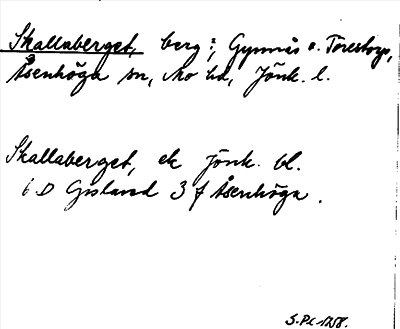 Skallaberget, berg i Gynnås o. Torestorp,
Åsenhöga sn, Mo hd, Jönk. l.
Skallaberget, ek Jönk. bl.
6 D Gisland 3 f Åsenhöga.